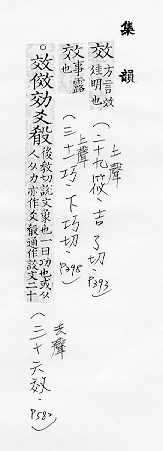 集韻
效 方言效
佳明也
上聲
(二十九筱‧吉了切‧P393)
效 事露
也
上聲
(三十一巧‧下巧切‧P398)
○效傚効爻殽 後教切說文象也一曰功也或从
人从力亦作爻殽通作設文二十
去聲
(三十六效‧P582)